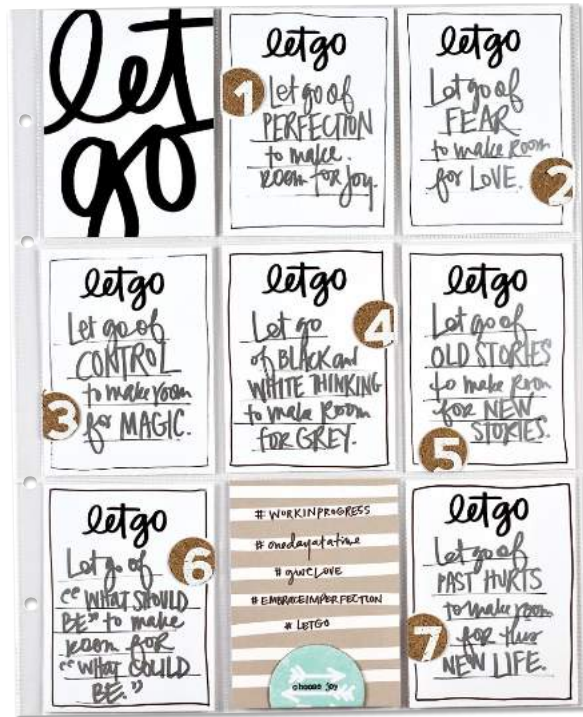 let
go
letgo
1
Let go of
PERFECTION
to make
room for joy.
letgo
Let go of
FEAR
to make room
for LOVE.
2
letgo
Let go of
CONTROL
to make room
for MAGIC.
3
letgo
Let go
4
of BLACK and
WHITE THINKING
to make room
FOR GREY.
letgo
Let go of
OLD STORIES
to make room
for NEW
STORIES.
5
letgo
Let go of
6
"WHAT SHOULD
BE" to make
room for
"WHAT COULD
BE."
# WORKINPROGRESS
# onedayatatime
# giveLOVE
# EMBRACEIMPERFECTION
# LETGO
choose joy
letgo
Let go of
PAST HURTS
to make room
7
for this
NEW LIFE.